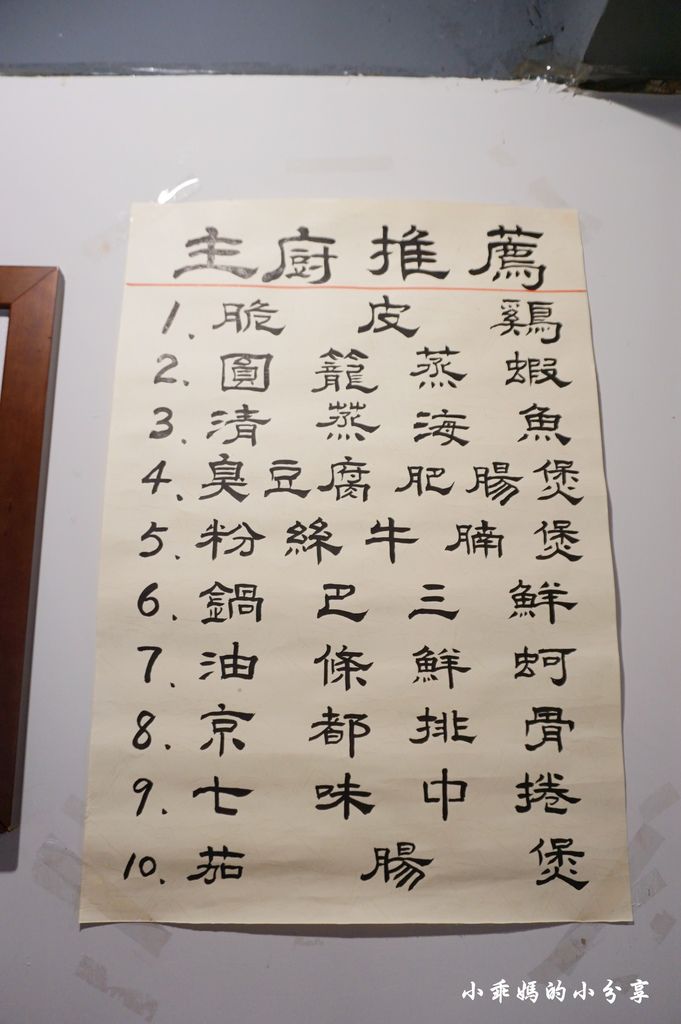 主廚推薦
1. 脆皮鷄
2. 圓籠蒸蝦
3. 清蒸海魚
4. 臭豆腐肥腸煲
5. 粉絲牛腩煲
6. 鍋巴三鮮
7. 油條鮮蚵
8. 京都排骨
9. 七味中捲
10. 茄腸煲
小乖媽的小分享